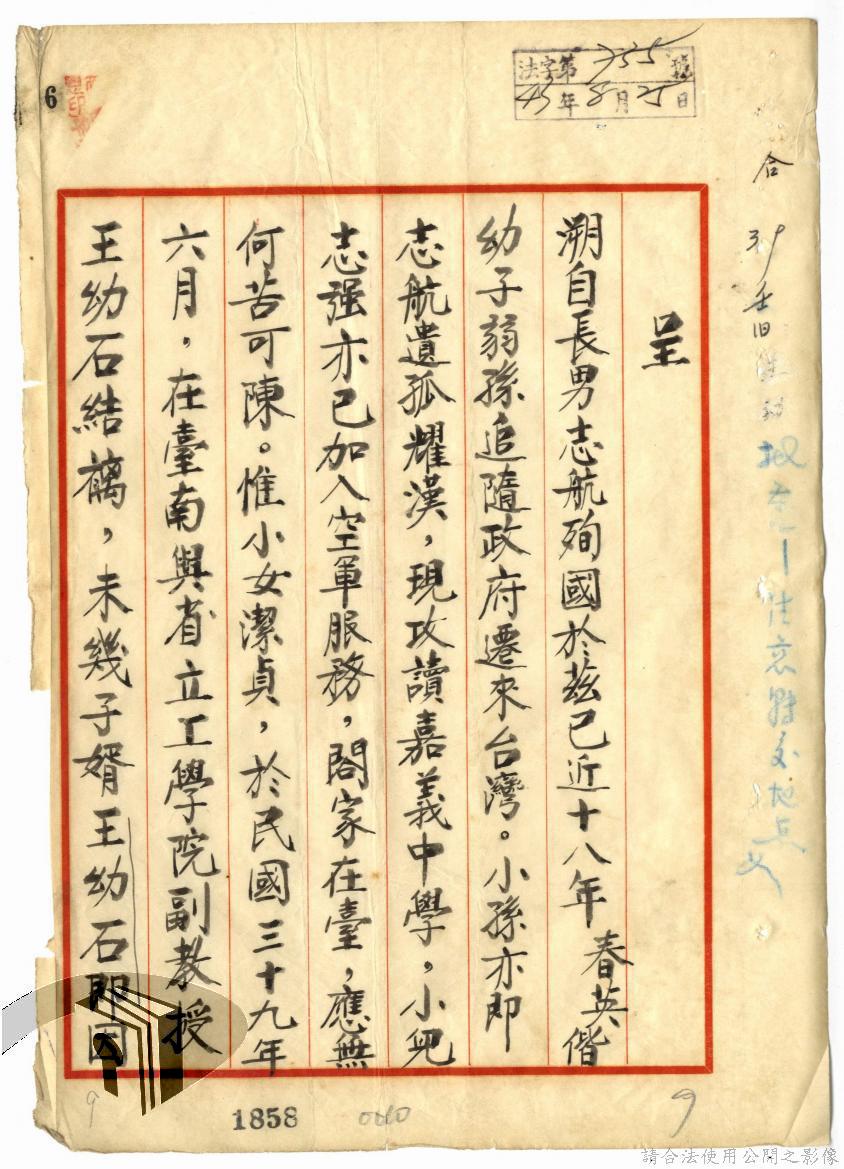 法字第755號
45年8月25日
6
呈
溯自長男志航殉國於茲已近十八年春英偕
幼子弱孫追隨政府遷來台灣。小孫亦即
志航遺孤耀漢，現攻讀嘉義中學，小兒
志强亦已加入空軍服務，閤家在臺，應無
何苦可陳。惟小女潔貞，於民國三十九年
六月，在臺南與省立工學院副教授
王幼石結褵，未幾子婿王幼石即因
合
9
1858
9
請合法使用公開之影像